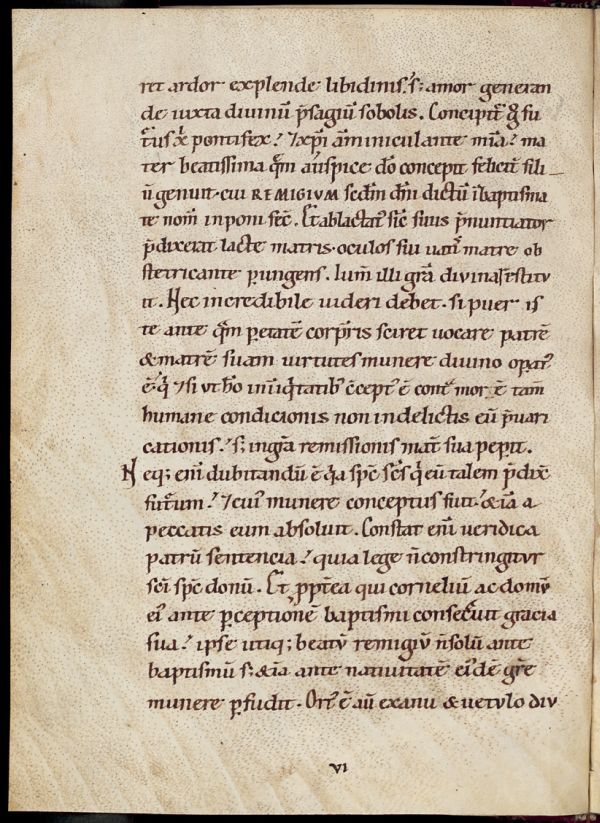 ret ardor explende libidinis. s; amor generan
de iuxta diuinū p̄sagiū sobolis. Concipit̄ g̊ fu
t̄us x̄ pontifex. ⁊ xp̄i am̄miniculante mīa. ma
ter beatissima q̄m auspice dō concepit felicit̄ fili
ū genuit. cui REMIGIVM sedm̄ dn̄i dictū ī baptisma
te nom̄ inponi fec̄. Et ablactat᷒ sic̄ suus p̄nuntiator
p̄dixerat lacte matris. oculos sui uatis matre ob
stetricante p̱ungens. lum̄ illi gr̄a diuina restitu
it. Nec incredibile uideri debet. si puer is
te ante q̄m p̱ etatē corp̱ris sciret uocare patrē
& matrē suam uirtutes munere diuino opat᷒
ē. q̄ ⁊ si ut hō in iniq̄tatib᷒ c̄cept᷒ ē cont᷒ morē tam̄
humane condicionis non in delictis eū p̄uari
cationis. s; in gr̄a remissionis mat̄ sua pep̱it.
Neq; eni̅ dubitandū ē q̄a sp̄c sc̄s q̄ eū talem p̄dix̄
futurum. ⁊ cui᷒ munere conceptus fuit. & iā a
peccatis eum absoluit. Constat eni̅ ueridica
patrū sentencia. quia lege n̄ constringitur
sc̄i sp̄c donū. Et pp̱t̄ea qui cornelium ac domū
ei᷒ ante p̱ceptionē baptismi consecrauit gracia
sua. ipse utiq; beatū remigiū n̄ solū ante
baptismū s; & iā ante natiuitatē ei᷒dē gr̄e
munere p̱fudit. Ort᷒ ē aū ex anu & uetulo diu
VI